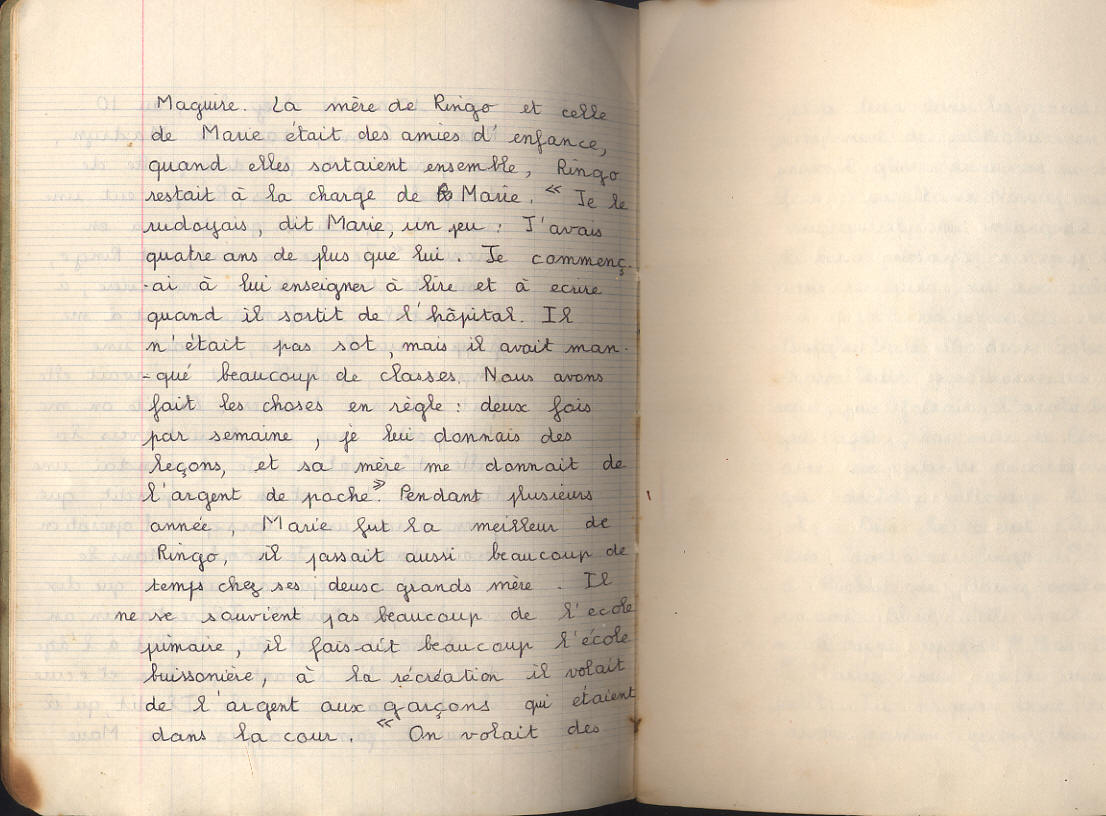 Maguire. La mère de Ringo et celle
de Marie était des amies d'enfance,
quand elles sortaient ensemble, Ringo
restait à la charge de Marie. « Je le
rudoyais, dit Marie, un peu : J'avais
quatre ans de plus que lui. Je commenç-
-ai à lui enseigner à lire et à ecrire
quand il sortit de l'hôpital. Il
n'était pas sot, mais il avait man-
-qué beaucoup de classes. Nous avons
fait les choses en règle : deux fois
par semaine, je lui donnais des
leçons, et sa mère me donnait de
l'argent de poche ». Pendant plusieurs
année, Marie fut la meilleur de
Ringo, il passait aussi beaucoup de
temps chez ses deux grands mère. Il
ne se souvient pas beaucoup de l'ecole
primaire, il faisait beaucoup l'école
buissonière, à la récréation il volait
de l'argent aux garçons qui étaient
dans la cour. « On volait des